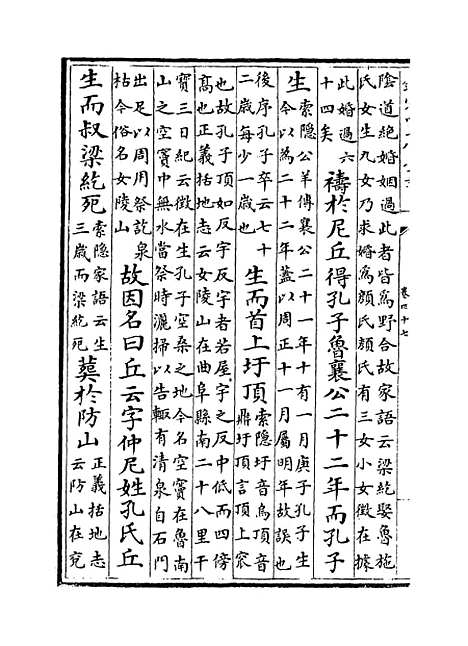 陰道絶婚姻過此者皆爲野合故家語云梁紇娶魯施
氏女生九女乃求婚爲顔氏顔氏有三女小女徵在據
此婚過六
十四矣
禱於尼丘得孔子魯襄公二十二年而孔子
生
索隱公羊傳襄公二十一年十有一月庚子孔子生
今以爲二十二年蓋以周正十一月屬明年故誤也
後序孔子卒云七十
二歲每少一歲也
生而首上圩頂
索隱圩音烏頂音
鼎圩頂言頂上窊
也故孔子頂如反宇反宇者若屋宇之反中低而四傍
高也正義括地志云女陵山在曲阜縣南二十八里干
寳三日紀云徵在生孔子空桑之地今名空竇在魯南
山之空竇中無水當祭時灑掃以告輙有清泉自石門
出足以周用祭訖泉
枯今俗名女陵山
故因名曰丘云字仲尼姓孔氏丘
生而叔梁紇死
索隱家語云生
三歲而梁紇死
葬於防山
正義括地志
云防山在兖
卷四十七